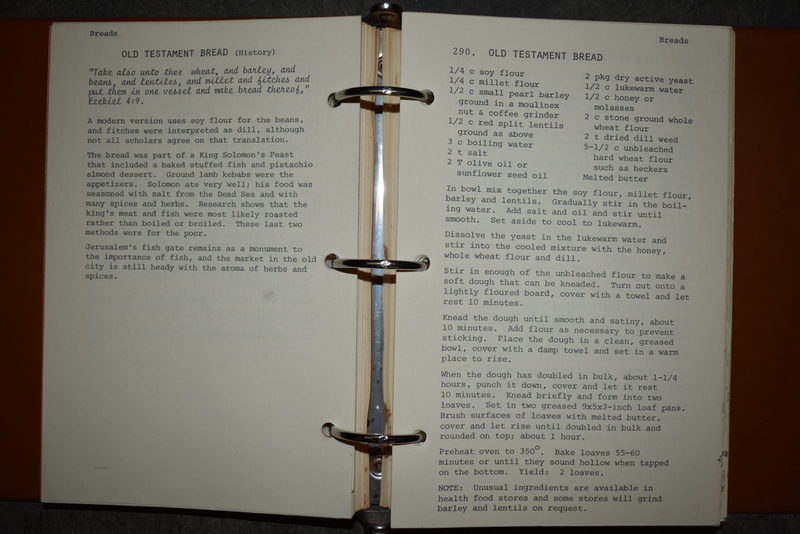 Breads
OLD TESTAMENT BREAD (History)
"Take also unto thee wheat, and barley, and
beans, and lentiles, and millet and fitches and
put them in one vessel and make bread thereof,"
Ezekiel 4:9.
A modern version uses soy flour for the beans,
and fitches were interpreted as dill, although
not all scholars agree on that translation.
The bread was part of a King Solomon's Feast
that included a baked stuffed fish and pistachio
almond dessert. Ground lamb kebabs were the
appetizers. Solomon ate very well; his food was
seasoned with salt from the Dead Sea and with
many spices and herbs. Research shows that the
king's meat and fish were most likely roasted
rather than boiled or broiled. These last two
methods were for the poor.
Jerusalem's fish gate remains as a monument to
the importance of fish, and the market in the old
city is still heady with the aroma of herbs and
spices.
Breads
290. OLD TESTAMENT BREAD
1/4 c soy flour
1/4 c millet flour
1/2 c small pearl barley
ground in a moulinex
nut & coffee grinder
1/2 c red split lentils
ground as above
3 c boiling water
2 t salt
2 T olive oil or
sunflower seed oil
2 pkg dry active yeast
1/2 c lukewarm water
1/2 c honey or
molasses
2 c stone ground whole
wheat flour
2 t dried dill weed
5-1/2 c unbleached
hard wheat flour
such as heckers
Melted butter
In bowl mix together the soy flour, millet flour,
barley and lentils. Gradually stir in the boil-
ing water. Add salt and oil and stir until
smooth. Set aside to cool to lukewarm.
Dissolve the yeast in the lukewarm water and
stir into the cooled mixture with the honey,
whole wheat flour and dill.
Stir in enough of the unbleached flour to make a
soft dough that can be kneaded. Turn out onto a
lightly floured board, cover with a towel and let
rest 10 minutes.
Knead the dough until smooth and satiny, about
10 minutes. Add flour as necessary to prevent
sticking. Place the dough in a clean, greased
bowl, cover with a damp towel and set in a warm
place to rise.
When the dough has doubled in bulk, about 1-1/4
hours, punch it down, cover and let it rest
10 minutes. Knead briefly and form into two
loaves. Set in two greased 9x5x3-inch loaf pans.
Brush surfaces of loaves with melted butter,
cover and let rise until doubled in bulk and
rounded on top; about 1 hour.
Preheat oven to 350°. Bake loaves 55-60
minutes or until they sound hollow when tapped
on the bottom. Yield: 2 loaves.
NOTE: Unusual ingredients are available in
health food stores and some stores will grind
barley and lentils on request.